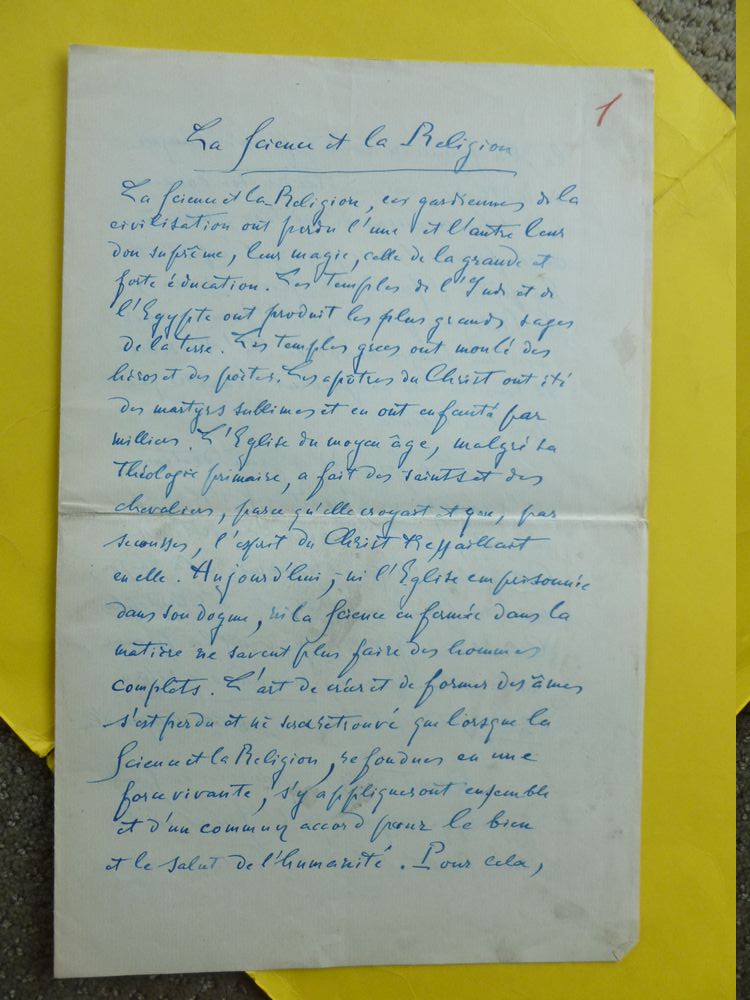 1
La Science et la Religion
La Science et la Religion, ces gardiennes de la
civilisation ont perdu l'une et l'autre leur
don suprême, leur magie, celle de la grande et
forte éducation. Les Temples de l'Inde et de
l'Egypte ont produit les plus grands sages
de la terre. Les temples grecs ont moulé des
héros et des poètes. Les apôtres du Christ ont été
des martyrs sublimes et en ont enfanté par
milliers. L'Eglise du moyen âge, malgré sa
Théologie primaire, a fait des saints et des
chevaliers, parce qu'elle croyait et que, par
secousses, l'esprit du Christ tressaillait
en elle. Aujourd'hui, ni l'Eglise emprisonnée
dans son dogme, ni la Science enfermée dans la
matière ne savent plus faire des hommes
complets. L'art de créer et de former des âmes
s'est perdu et ne sera retrouvé que lorsque la
Science et la Religion, refondues en une
force vivante, s'y appliqueront ensemble
et d'un commun accord pour le bien
et le salut de l'humanité. Pour cela,